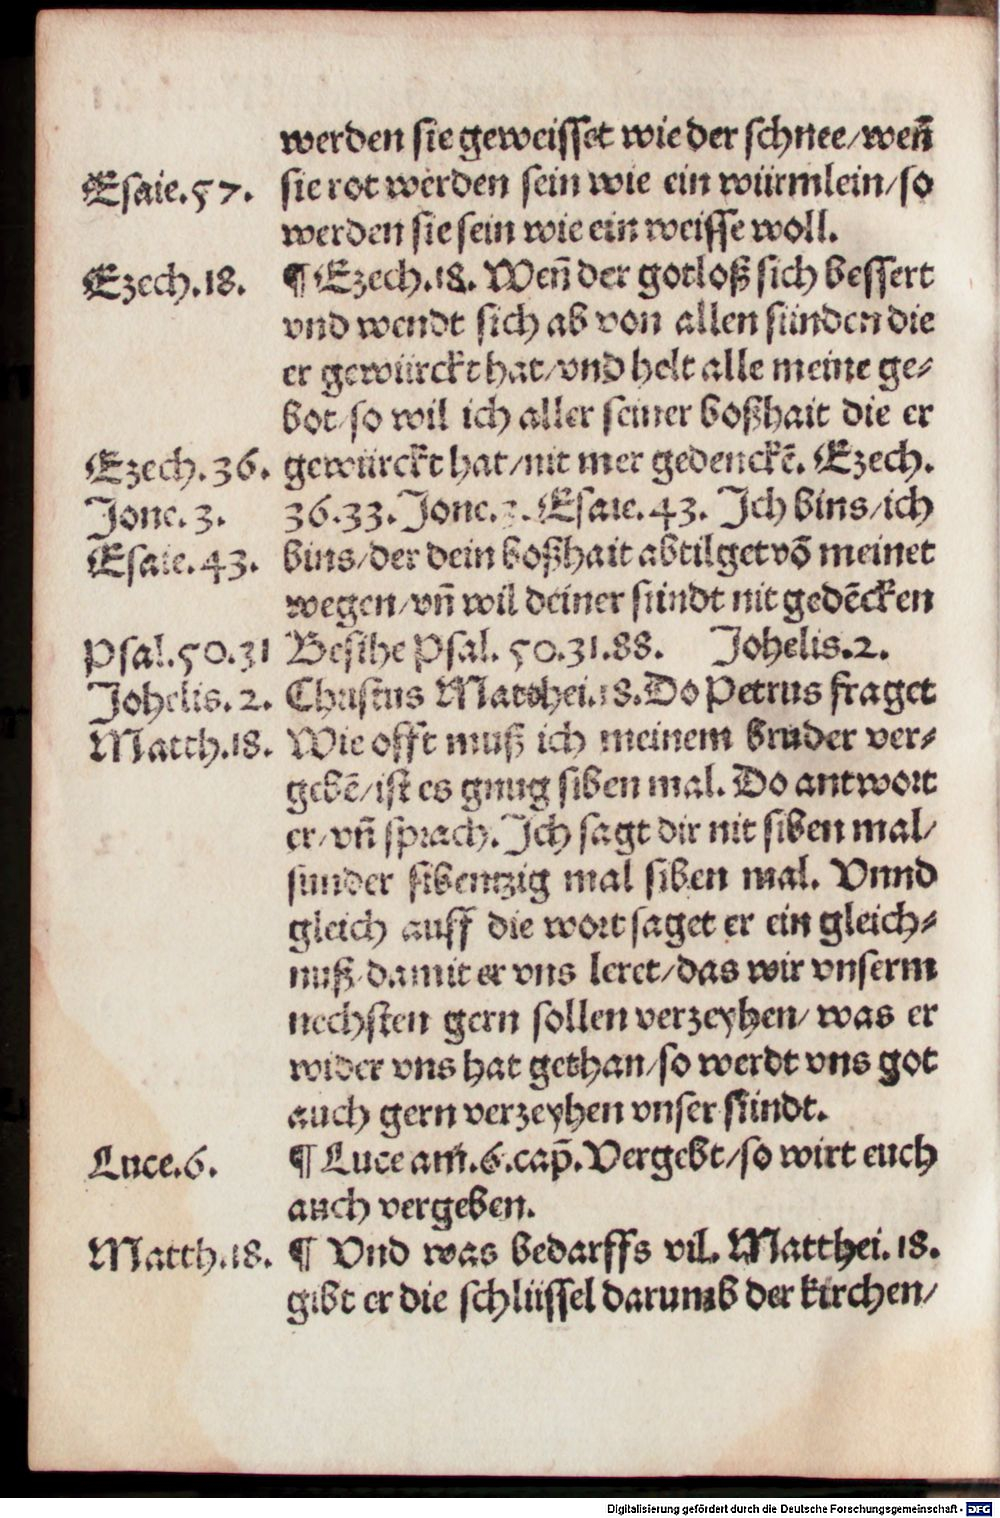 werden sie geweisset wie der schnee/weñ
Esaie.57. sie rot werden sein wie ein würmlein/so
werden sie sein wie ein weisse woll.
Ezech.18. ¶ Ezech.18. Weñ der gotloß sich bessert
vnd wendt sich ab von allen sünden die
er gewürckt hat/vnd helt alle meine ge⸗
bot/so wil ich aller seiner boßhait die er
Ezech.36. gewürckt hat/nit mer gedenckē. Ezech.
Jone.3. 36.33. Jone.3. Esaie.43. Ich bins/ich
Esaie.43. bins/der dein boßhait abtilget võ meinet
wegen/vñ wil deiner sündt nit gedēcken
Psal.50.31 Besihe Psal. 50.31.88. Johelis.2.
Johelis.2. Christus Matthei.18. Do Petrus fraget
Matth.18. Wie offt muß ich meinem bruder ver⸗
gebē/ist es gnug siben mal. Do antwort
er/vñ sprach. Ich sagt dir nit siben mal/
sunder sibentzig mal siben mal. Vnnd
gleich auff die wort saget er ein gleich⸗
nuß/damit er vns leret/das wir vnserm
nechsten gern sollen verzeyhen/was er
wider vns hat gethan/so werdt vns got
auch gern verzeyhen vnser sündt.
Luce.6. ¶ Luce am̃.6.cap̃. Vergebt/so wirt euch
auch vergeben.
Matth.18. ¶ Vnd was bedarffs vil. Matthei.18.
gibt er die schlüssel darumb der kirchen/
Digitalisierung gefördert durch die Deutsche Forschungsgemeinschaft - DFG